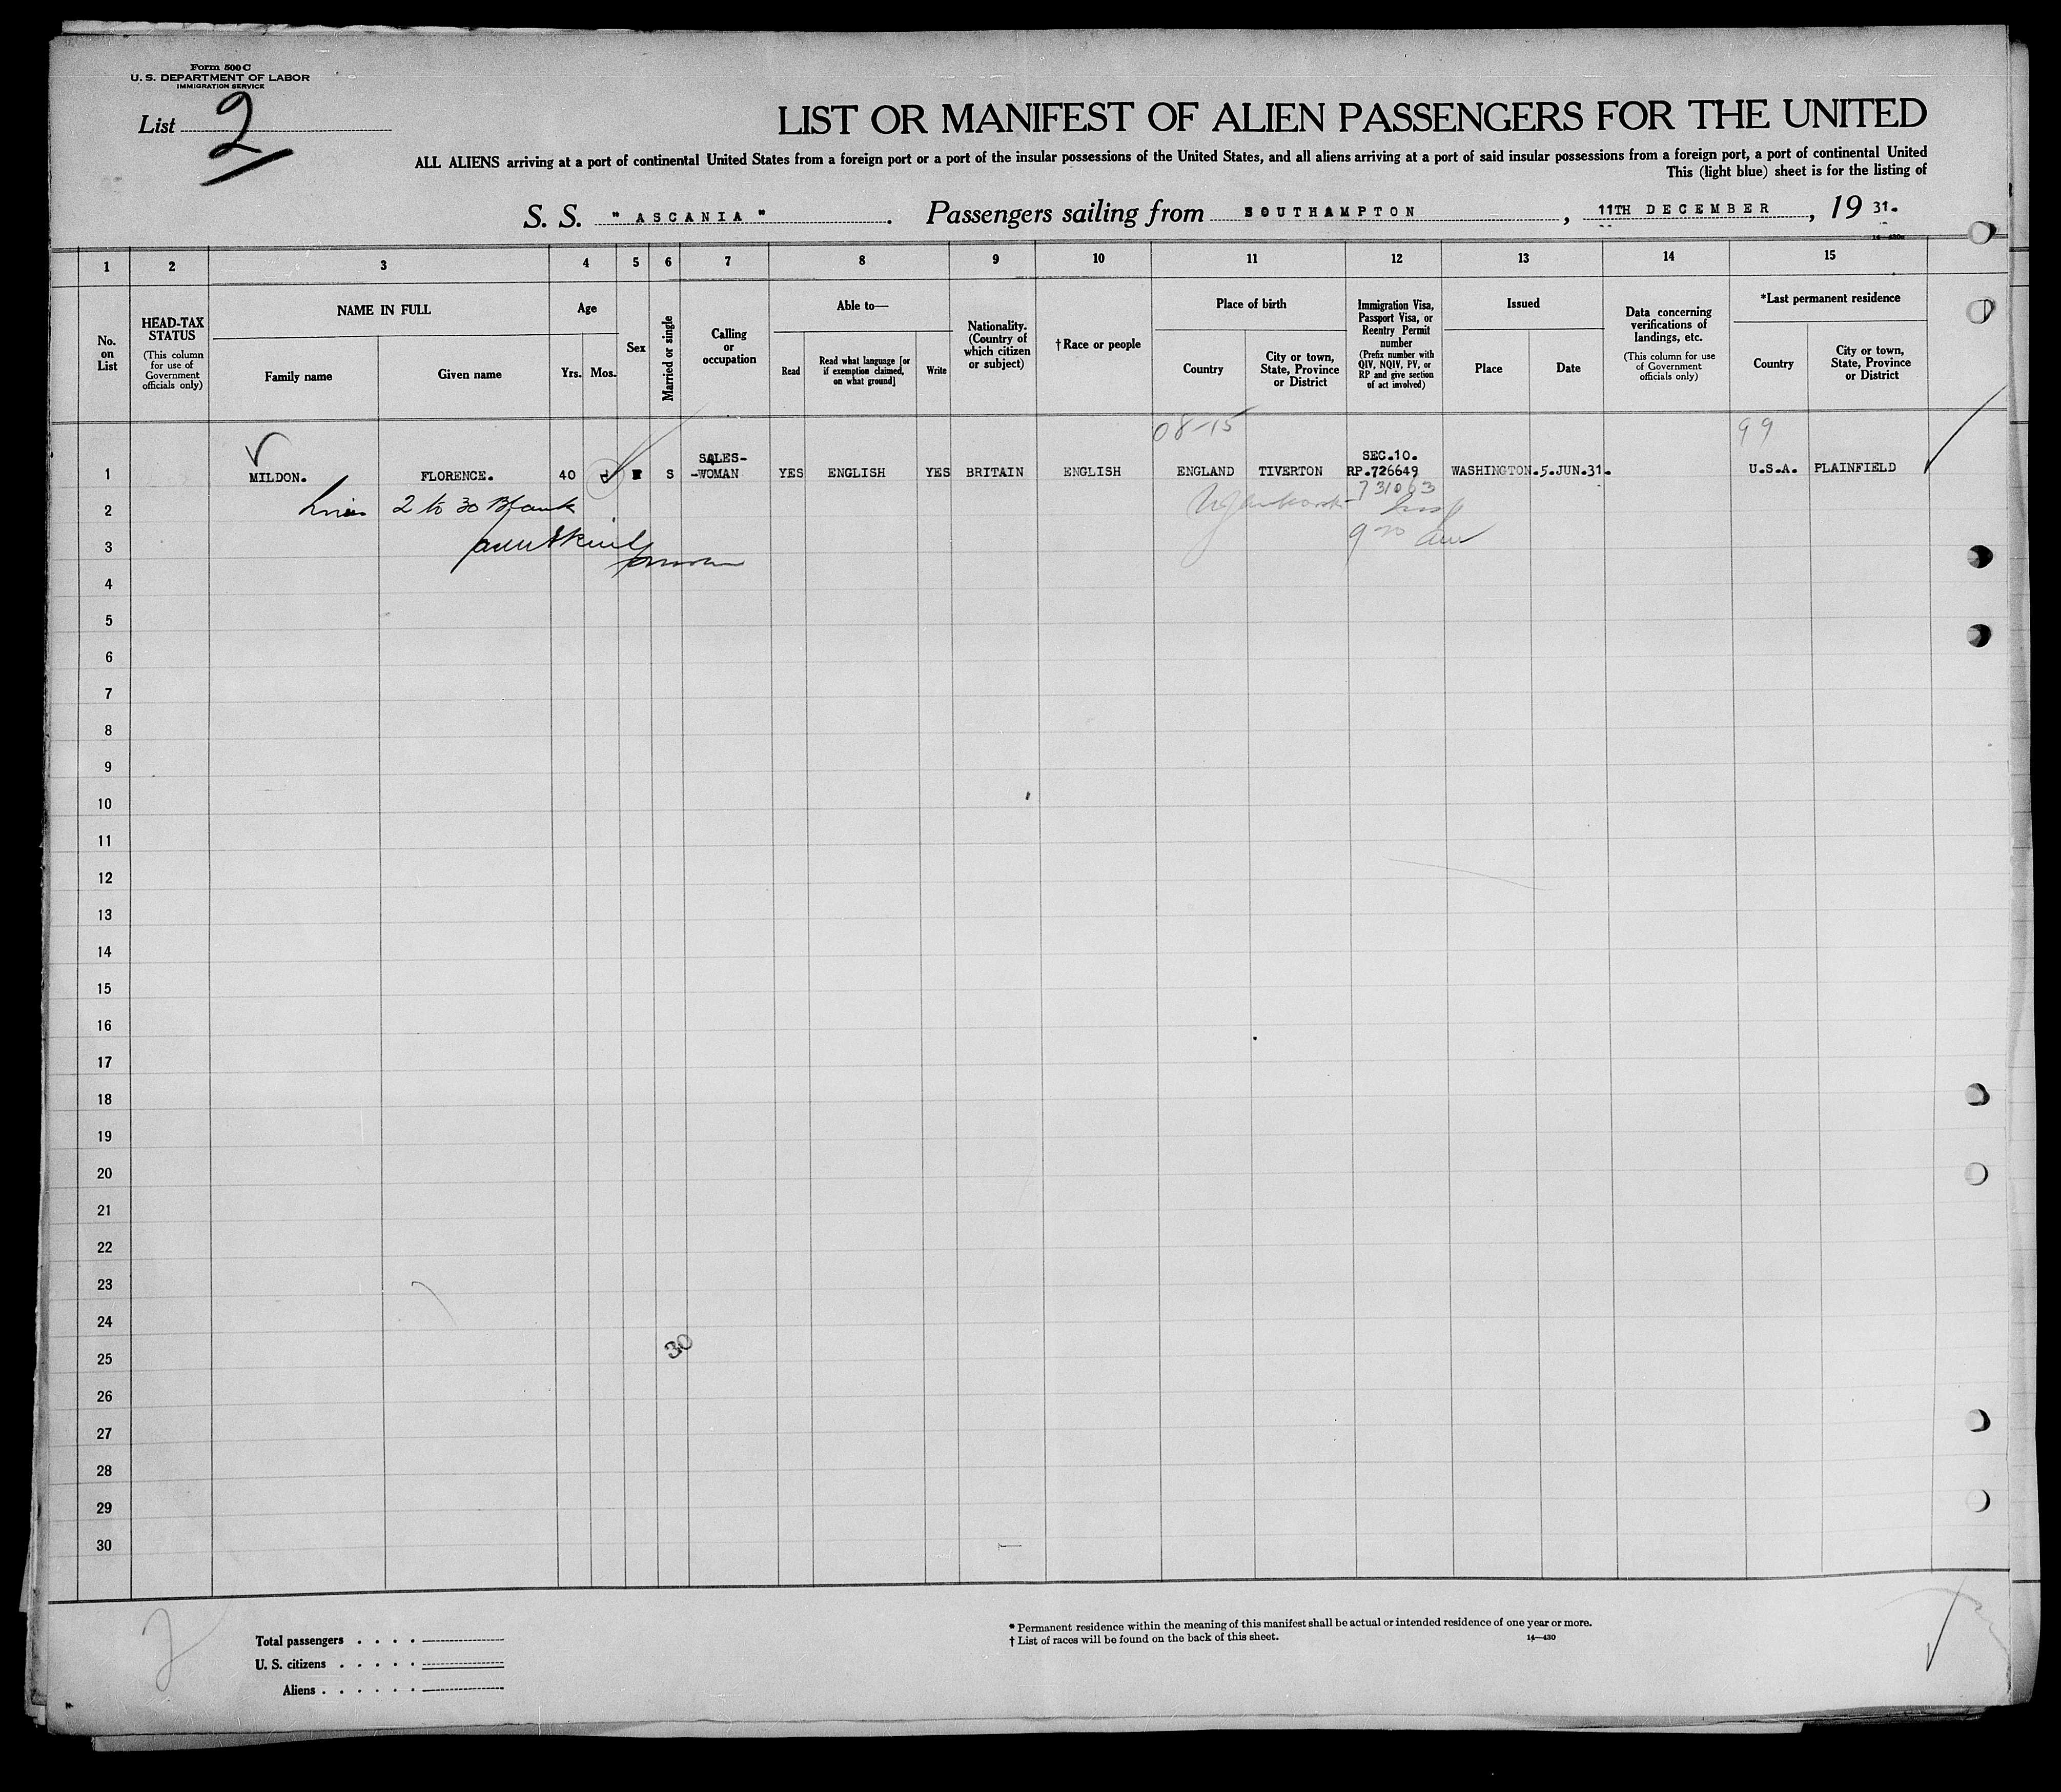 Form 500 C
U. S. DEPARTMENT OF LABOR
IMMIGRATION SERVICE
List 2
LIST OR MANIFEST OF ALIEN PASSENGERS FOR THE UNITED
ALL ALIENS arriving at a port of continental United States from a foreign port or a port of the insular possessions of the United States, and all aliens arriving at a port of said insular possessions from a foreign port, a port of continental United
This (light blue) sheet is for the listing of
S. S. " ASCANIA " . Passengers sailing from SOUTHAMPTON , 11TH DECEMBER , 19 31.
1 2 3 4 5 6 7 8 9 10 11 12 13 14 15
No. on List
HEAD-TAX STATUS
(This column for use of Government officials only)
NAME IN FULL
Family name
Given name
Age
Yrs.
Mos.
Sex
Married or single
Calling or occupation
Able to—
Read
Read what language [or if exemption claimed, on what ground]
Write
Nationality. (Country of which citizen or subject)
†Race or people
Place of birth
Country
City or town, State, Province or District
Immigration Visa, Passport Visa, or Reentry Permit number
(Prefix number with QIV, NQIV, PV, or RP and give section of act involved)
Issued
Place
Date
Data concerning verifications of landings, etc.
(This column for use of Government officials only)
*Last permanent residence
Country
City or town, State, Province or District
08-15
99
1 MILDON. FLORENCE. 40 S SALES-
-WOMAN YES ENGLISH YES BRITAIN ENGLISH ENGLAND TIVERTON SEC.10.
RP.726649 WASHINGTON.5.JUN.31. U.S.A. PLAINFIELD
731063
2 Lines 2 to 30 Blank
3
4
5
6
7
8
9
10
11
12
13
14
15
16
17
18
19
20
21
22
23
24
30
25
26
27
28
29
30
2
Total passengers
U. S. citizens
Aliens
* Permanent residence within the meaning of this manifest shall be actual or intended residence of one year or more.
† List of races will be found on the back of this sheet.
14—430